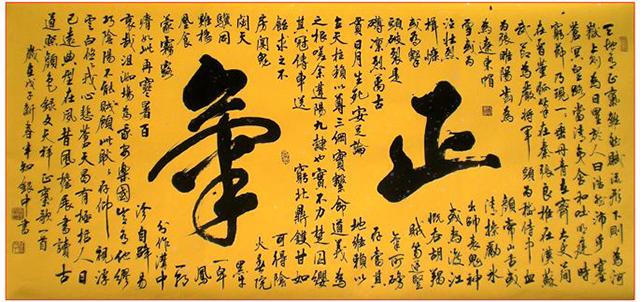 正氣
天地有正氣雜然賦流形下則為河
嶽上則為日星於人曰浩然沛乎塞
蒼冥皇路當清夷含和吐明庭時
窮節乃現一一垂丹青在齊太史簡
在晉董狐筆在秦張良椎在漢蘇
武節為嚴將軍頭為嵇侍中血
為張睢陽齒為顏常山舌或
為遼東帽清操勵冰
雪或為出師表鬼神
泣壯烈或為渡江
楫慷慨吞胡羯
或為擊賊笏逆豎
頭破裂是氣所磅
礡凜烈萬古存當其
貫日月生死安足論地維賴以
立天柱賴以尊三綱實繫命道義為
之根嗟余遘陽九隸也實不力楚囚纓
其冠傳車送窮北鼎鑊甘如
飴求之不可得陰
房闃鬼火春院
閟天黑牛
驥同一皁
雞棲鳳
凰食一朝
蒙霧露分作溝中
瘠如此再寒暑百沴自辟易
哀哉沮洳場為我安樂國豈有他繆
巧陰陽不能賊顧此耿耿存仰視浮
雲白悠悠我心悲蒼天曷有極哲人日
已遠典型在夙昔風簷展書讀古
道照顏色錄文天祥正氣歌一首
歲在戊子新春銀中書